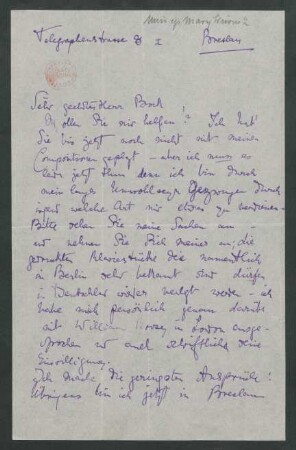 Telegraphenstrasse 8 I Breslau
Sehr geehrter Herr Bock!
Wollen Sie mir helfen? Ich hab'
Sie bis jetzt noch nicht mit meinen
Compositionen geplagt – aber ich muss es
leider jetzt thun denn ich bin durch
mein langes Unwohlsein gezwungen durch
irgend welche Art mir etwas zu verdienen –
Bitte sehen Sie meine Sachen an –
und nehmen Sie Sich meiner an; die
gedruckten Klavierstücke die namentlich
in Berlin sehr bekannt sind dürfen
in Deutschland wieder verlegt werden – ich
habe mich persönlich genau darüber
mit William Rogers in London ausge-
sprochen und auch schriftlich seine
Einwilligung.
Ich mache die geringsten Ansprüche!
Übrigens bin ich jetzt in Breslau